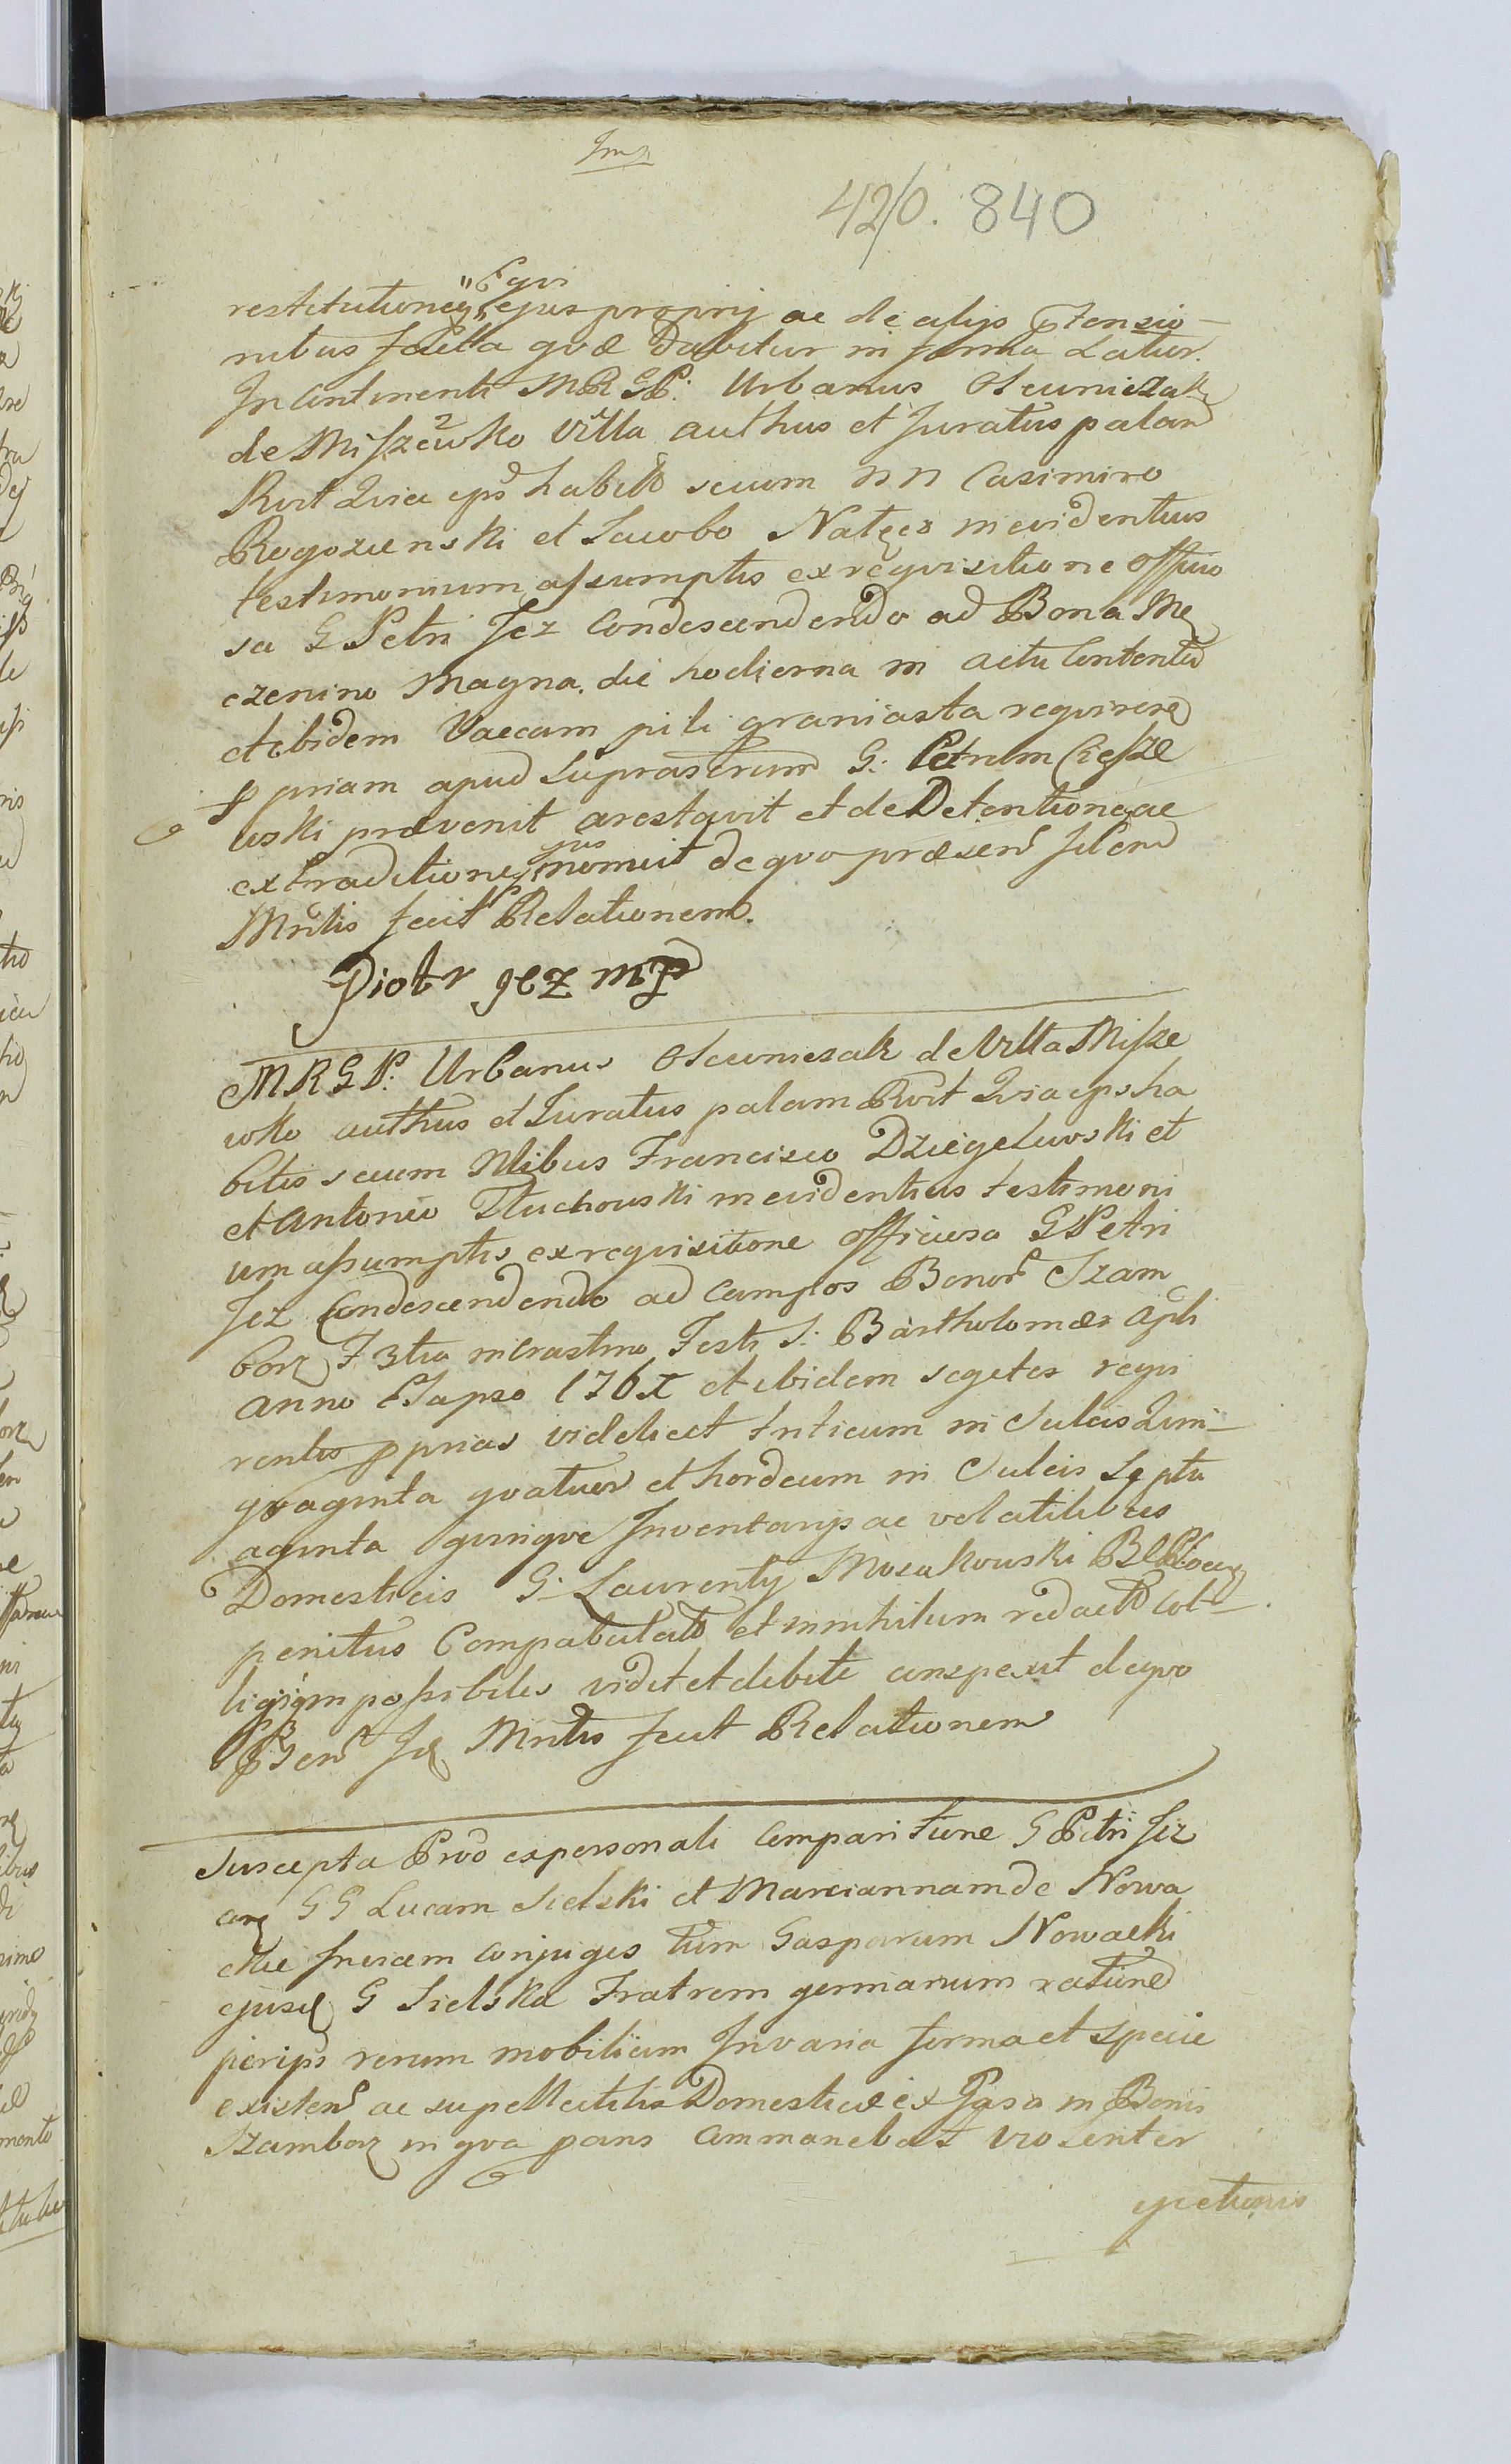 Imp
42/0. 840
Eqvi
restitutioneq ejus proprij ac de alijs Ptensio-
nibus facta qvæ dabitur in forma Latior.
In Continenti MRGP: Urbanus Olcuniczak
de Miszewko Villa authus et Juratus palam
Rvit Qvia ips habitis secum NN Casimiro
Rogozienski et Jacobo Natęcz in evidentius
testimonium assumptis ex reqvisitione officio
sa G Petri Jez Condescendendo ad Bona Mę
czenino Magna die hodierna in actu Contento
et ibidem Vaccam pili graniasta reqvirere
ppriam apud Suprascrum G: Petrum Ciesze
wski prævenit arestavit et de Detentione ac
extraditione ejus monuit de qvo præsens Jdem
Mrlis fecit Relationem.
Piotr Jez mp
MRGP: Urbanus Olcuniczak de Villa Misze
wko authus et Juratus palam Rvit Qvia ips ha
bitis secum Nlibus Francisco Dziegelewski et
et Antonio Tluchowski in evidentius testimoni
um assumptis ex reqvisitione officiosa G Petri
Jez Condescendendo ad Campos Bonor Szam
borz F 3tia in Crastino Festi S: Bartholomæi Apli
Anno Elapso 176 et ibidem segetes reqvi
rentis pprias videlicet triticum in Sulcis Qvin-
qvaginta qvatuor et hordeum in Sulcis Septu
aginta qvinqve Inventarijs ac volatilibus
Domesticis G: Laurentij Mosakowski
penitus Compabulatas et in nihilum redactas Col-
ligi impossibiles vidit et debite conspexit de qvo
Psens Jd Mrlis fecit Relationem
Suscepta Prvo ex personali Comparitione G Petri Jez
crą GG Lucam Sielski et Mariannam de Nowa
ckie Invicem Conjuges tum Gasparum Nowacki
ejusd G Sielska Fratrem germanum ratione
per ips rerum mobilium In varia forma et specie
existens ac supellectilis Domesticæ ex Casa in Bonis
Szamborz in qva pans Commanebat violenter